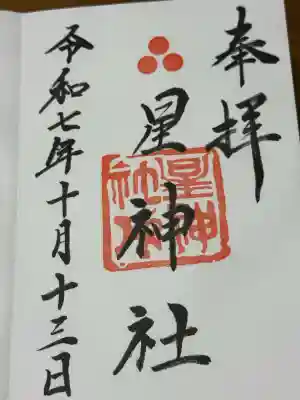 奉拝
星神社
星神社印
令和七年十月十三日